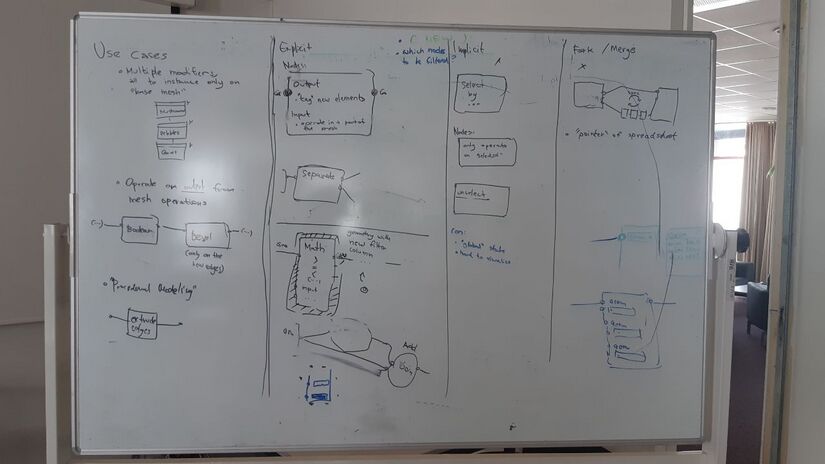 Use cases
• Multiple modifiers
all to instance only on
"base mesh"
Pebbles
• Operate on output from
mesh operations
(...)
Boolean
Bevel
(...)
(only on the
new edges)
• "Procedural Modeling"
extrude
edges
Explicit
Nodes:
Output
"tag" new elements
Input
• operate in a part of
the mesh
Separate
geometry with
new filter
column
...
Math
>
=
<
(...)
input
...
Add
Join
• which nodes
to be filtered?
Implicit
Select
by
...
Nodes:
"only operate
on selected"
unselect
Con:
• "global" state
• hard to visualize
Fork / Merge
• "pointer" of spreadsheet
Geom
Geom
Geom